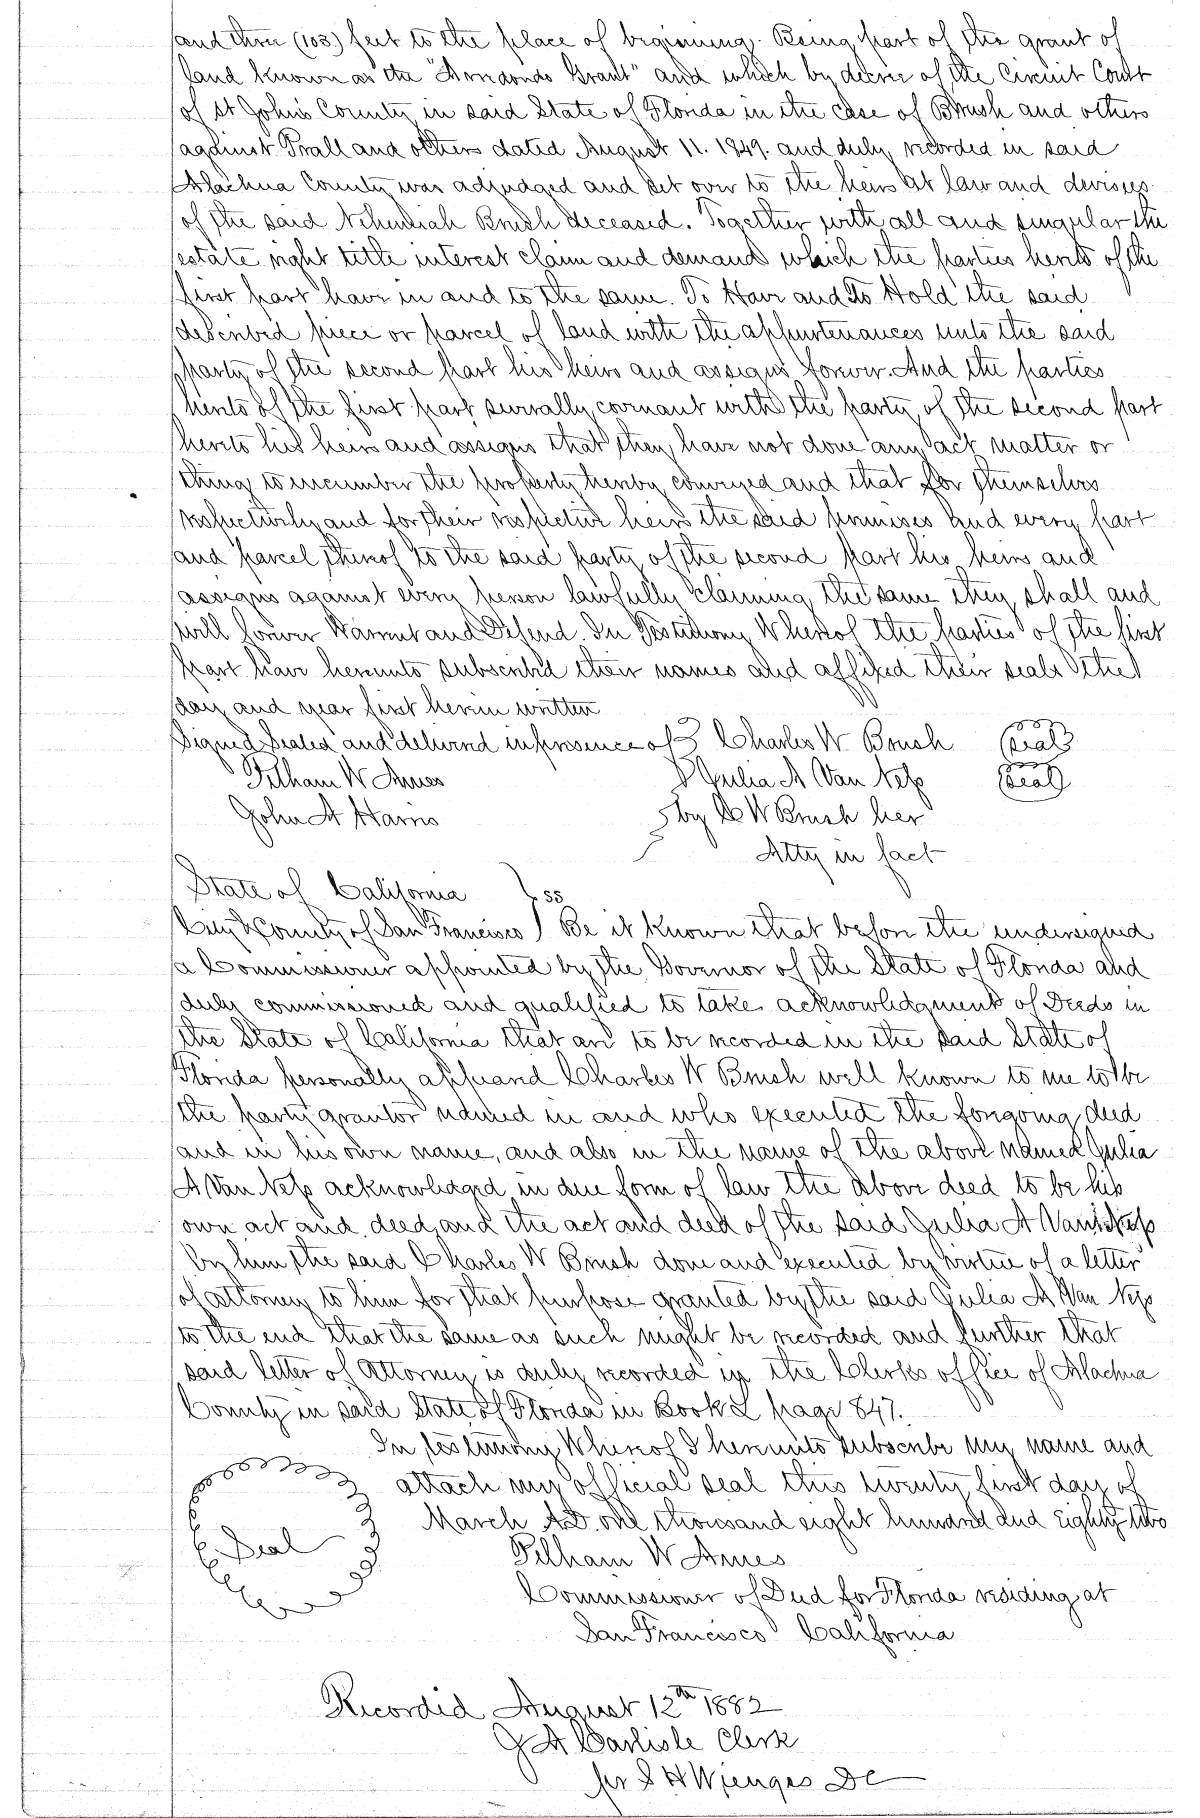 and three (103) feet to the place of beginning. Being part of the grant of
land known as the "Arredondo Grant" and which by decree of the Circuit Court
of St Johns County in said State of Florida in the case of Brush and others
against Prall and others dated August 11. 1849. and duly recorded in said
Alachua County was adjudged and set over to the heirs at law and devises
of the said Nehemiah Brush deceased. Together with all and singular the
estate right title interest claim and demand which the parties hereto of the
first part have in and to the same. To Have and To Hold the said
described piece or parcel of land with the appurtenances unto the said
party of the second part his heirs and assigns forever. And the parties
hereto of the first part severally covenant with the party of the second part
hereto his heirs and assigns that they have not done any act matter or
thing to encumber the property hereby conveyed and that for themselves
respectively and for their respective heirs the said premises and every part
and parcel thereof to the said party of the second part his heirs and
assigns against every person lawfully claiming the same they shall and
will forever Warrent and Defend. In Testimony Whereof the parties of the first
part have hereunto subscribed their names and affixed their seals the
day and year first herein written
Signed Sealed and delivered in presence of } Charles W Brush (seal)
Pelham W Ames } Julia A Van Ness (seal)
John A Harris } by C W Brush her
Atty in fact
State of California } ss
City & County of San Francisco } Be it Known that before the undersigned
a Commissioner appointed by the Governor of the State of Florida and
duly commissioned and qualified to take acknowledgment of Deeds in
the State of California that are to be recorded in the said State of
Florida personally appeared Charles W Brush well known to me to be
the party grantor named in and who executed the foregoing deed
and in his own name, and also in the name of the above named Julia
A Van Ness acknowledged in due form of law the above deed to be his
own act and deed, and the act and deed of the said Julia A Van Ness
by him the said Charles W Brush done and executed by virtue of a letter
of attorney to him for that purpose granted by the said Julia A Van Ness
to the end that the same as such might be recorded and further that
said letter of Attorney is duly recorded in the Clerks office of Alachua
County in said State of Florida in Book L page 847.
In testimony Whereof I hereunto subscribe my name and
attach my official seal this twenty first day of
March A.D. one thousand eight hundred and Eighty two
Seal
Pelham W Ames
Commissioner of Deed for Florida residing at
San Francisco California
Recorded August 12th 1882
J A Carlisle Clerk
per S H Wienges DC